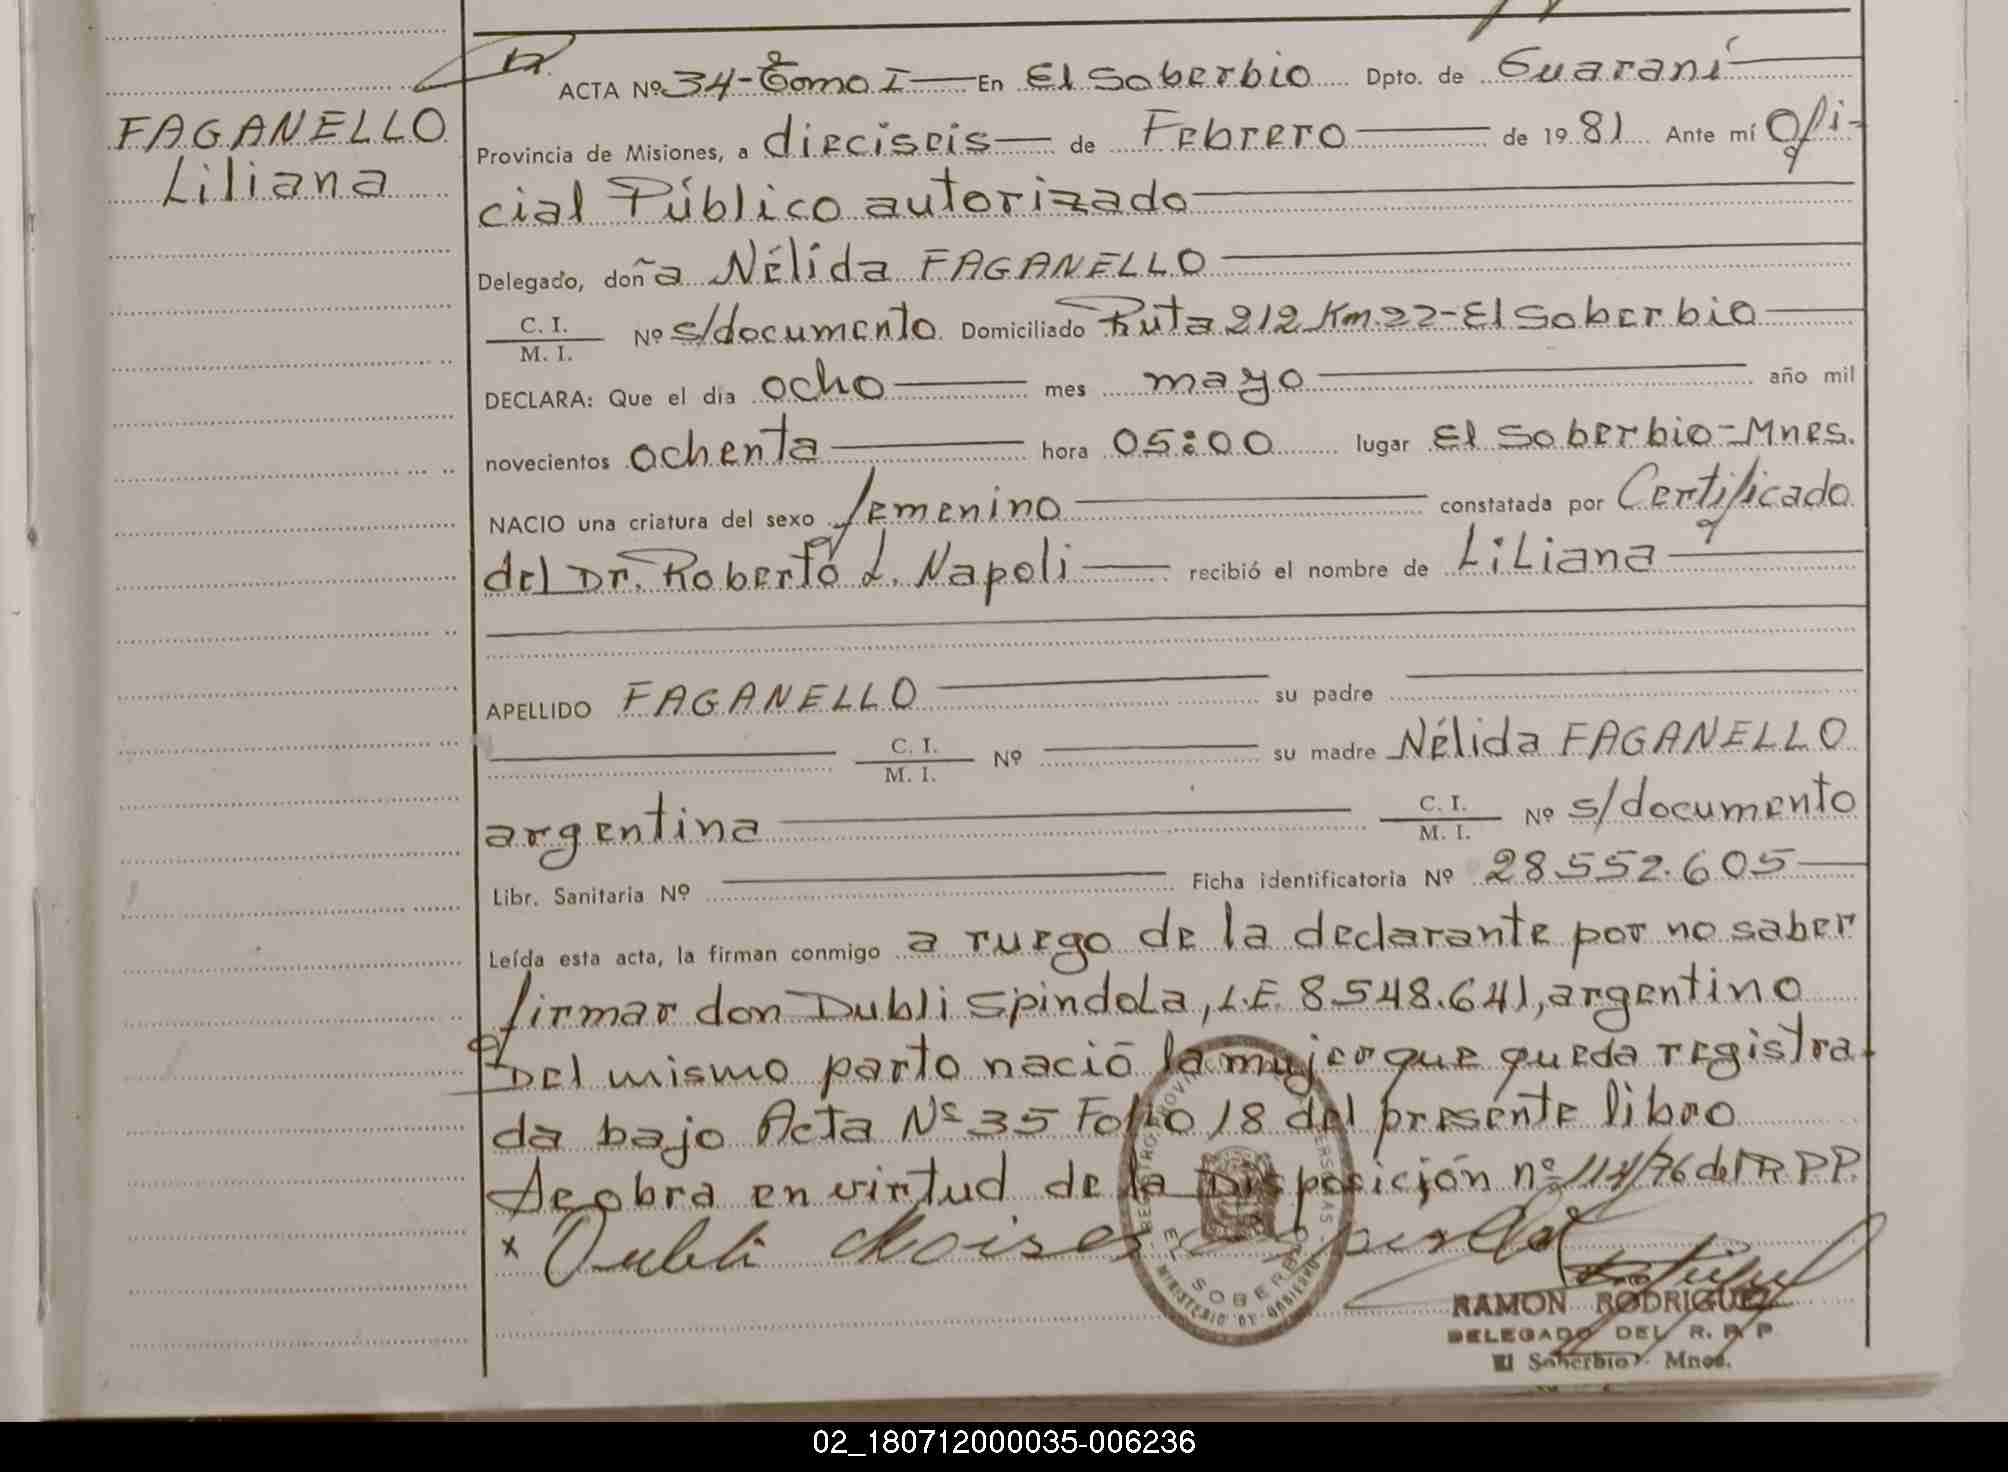 FAGANELLO
Liliana
ACTA Nº 34-Tomo I En El Soberbio Dpto. de Guaraní
Provincia de Misiones, a dieciseis de Febrero de 1981 Ante mí Ofi-
cial Público autorizado
Delegado, doña Nélida FAGANELLO
C. I.
M. I. Nº s/documento Domiciliado Ruta 212 Km.22-El Soberbio
DECLARA: Que el día ocho mes mayo año mil
novecientos ochenta hora 05:00 lugar El Soberbio-Mnes.
NACIO una criatura del sexo femenino constatada por Certificado
del Dr. Roberto L. Napoli recibió el nombre de Liliana
APELLIDO FAGANELLO su padre
C. I.
M. I. Nº su madre Nélida FAGANELLO
argentina C. I.
M. I. Nº s/documento
Libr. Sanitaria Nº Ficha identificatoria Nº 28.552.605
Leída esta acta, la firman conmigo a ruego de la declarante por no saber
firmar don Dubli Spindola, L.E. 8.548.641, argentino
Del mismo parto nació la mujer que queda registra-
da bajo Acta Nº 35 Folio 18 del presente libro
Se obra en virtud de la Disposición nº 111/76 del R.P.P.
x Dubli Moises Spindola
REGISTRO PROVINCIAL
EL SOBERBIO
MINISTERIO DE GOBIERNO
RAMON RODRIGUEZ
DELEGADO DEL R. P. P
El Soberbio - Mnes.
02_180712000035-006236